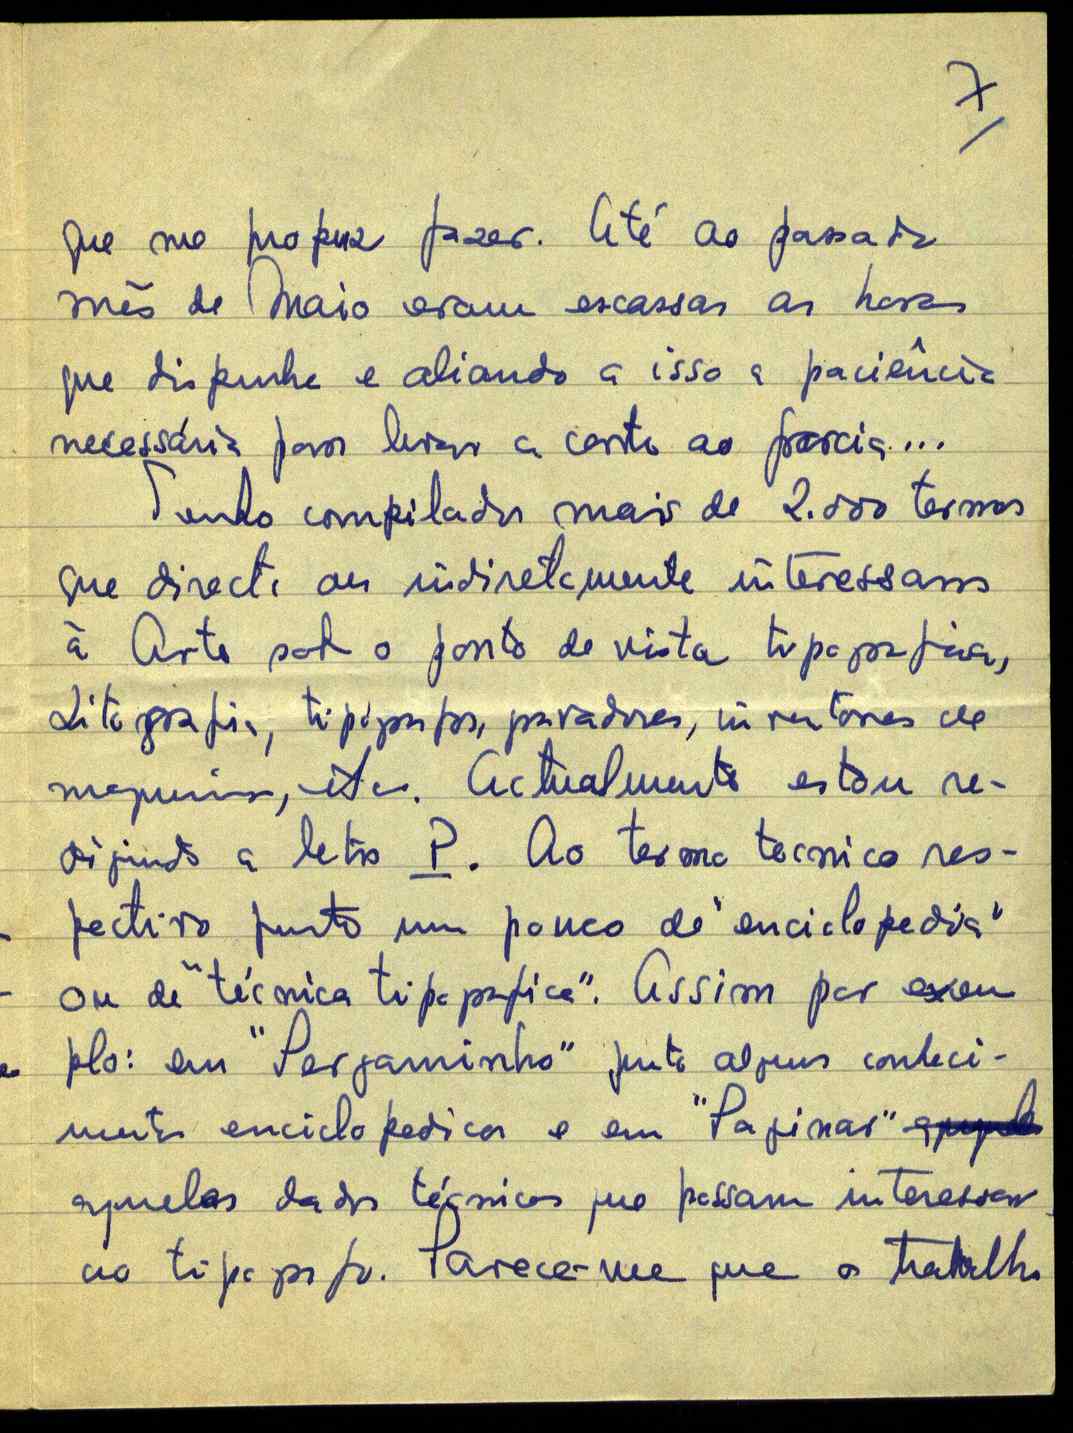 7/
que me propuz fazer. Até ao passado
mês de Maio eram escassas as horas
que dispunha e aliando a isso a paciência
necessária para levar a carta ao
Tenho compilados mais de 2.000 termos
que directa ou indiretamente interessam
à Arte sob o ponto de vista tipografica,
Litografia, tipógrafos, gravadores, inventores de
maquinas, etc. Actualmente estou re-
digindo a letra P. Ao termo tecnico res-
pectivo junto um pouco de "enciclopedia"
ou de "técnica tipografica". Assim por exem
plo: em "Pergaminho" junto alguns conheci-
mentos enciclopedicos e em "Paginar"
aqueles dados técnicos que possam interessar
ao tipografo. Parece-me que o trabalho